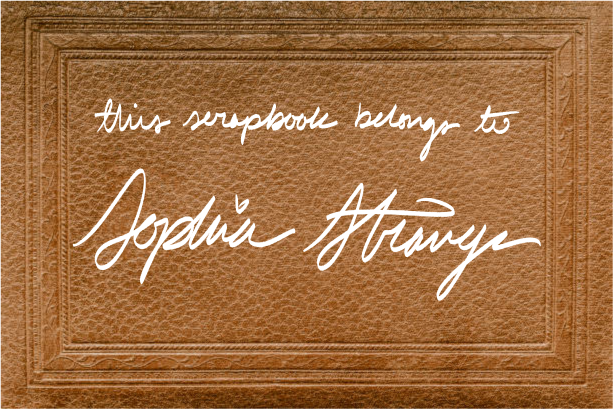 this scrapbook belongs to
Sophia Strange